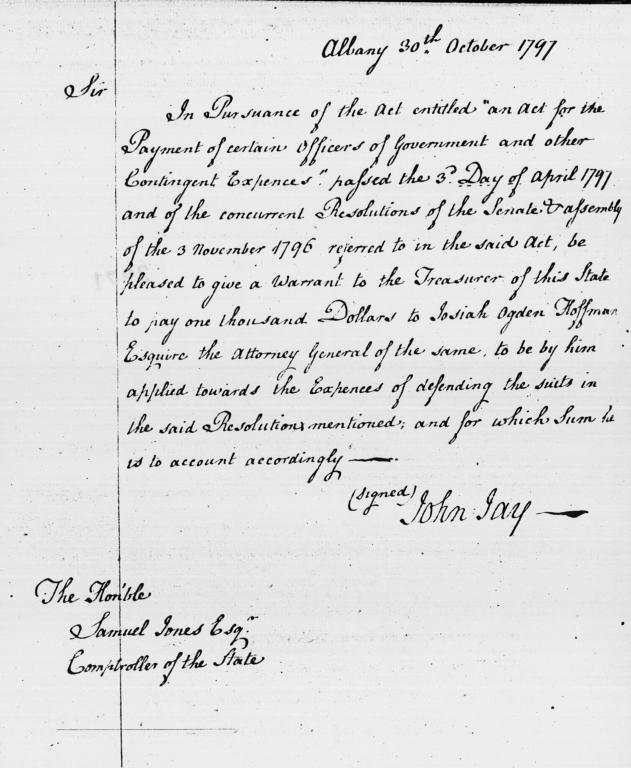 Albany 30th October 1797
Sir
In Pursuance of the Act entitled "an Act for the
Payment of certain Officers of Government and other
Contingent Expences" passed the 3d Day of April 1797
and of the concurrent Resolutions of the Senate & assembly
of the 3 November 1796 referred to in the said Act, be
pleased to give a Warrant to the Treasurer of this State
to pay one thousand Dollars to Josiah Ogden Hoffman
Esquire the Attorney General of the same, to be by him
applied towards the Expences of defending the suits in
the said Resolutions mentioned; and for which Sum he
is to account accordingly —.
(signed) John Jay —
The Honble
Samuel Jones Esqr
Comptroller of the State